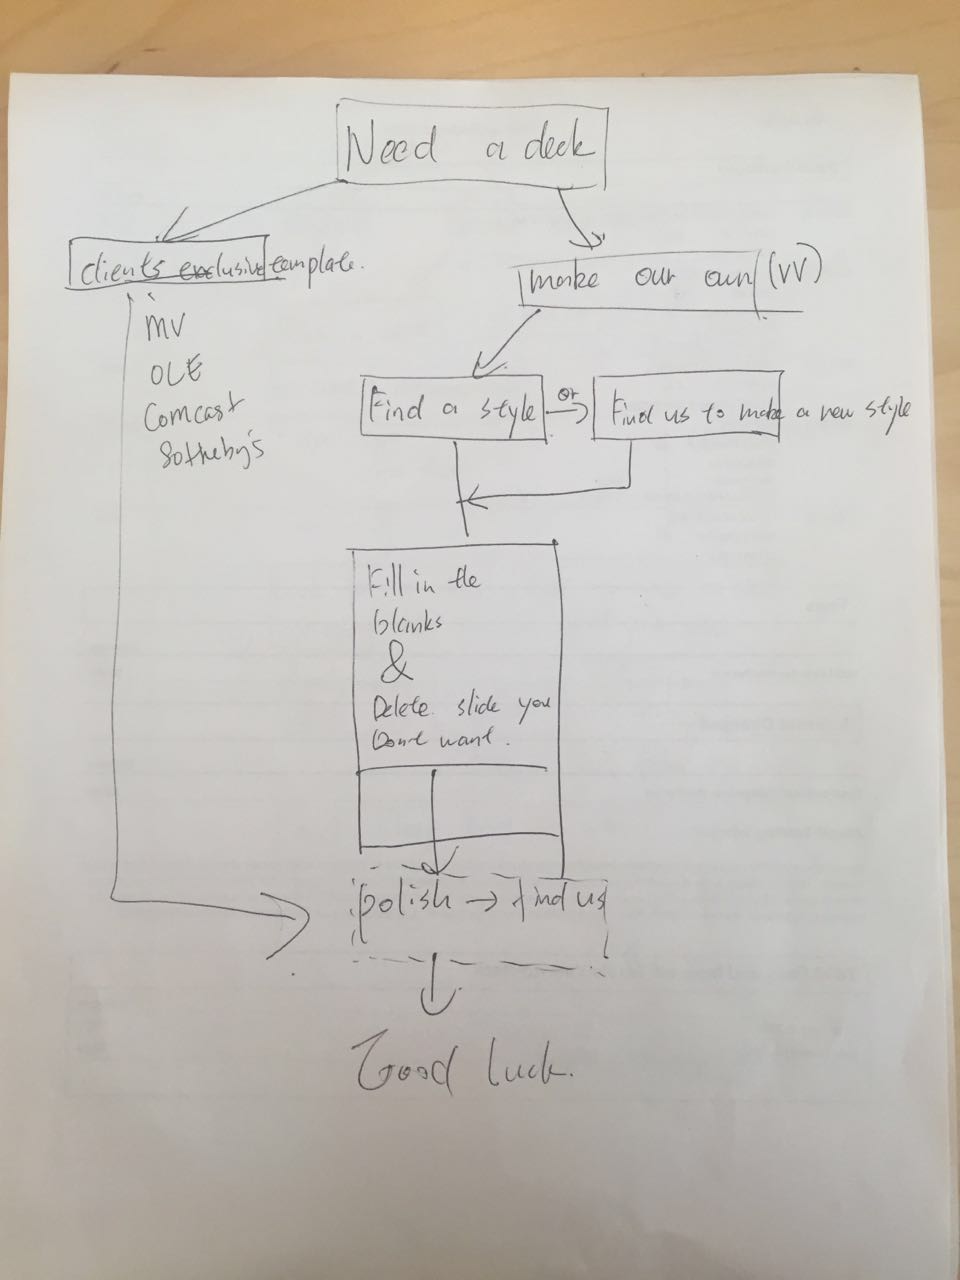 Need a deck
clients exclusive template.
make our own (VV)
MV
OLE
Comcast
Sotheby's
Find a style
or
Find us to make a new style
Fill in the
blanks
&
Delete slide you
Dont want.
polish → find us
Good luck.